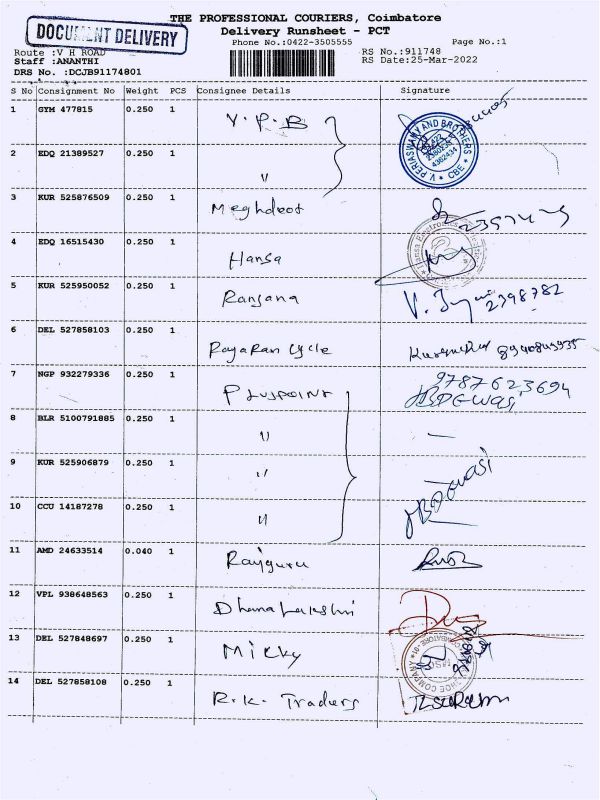 THE PROFESSIONAL COURIERS, Coimbatore
DOCUMENT DELIVERY
Delivery Runsheet - PCT
Phone No.:0422-3505555 Page No.:1
Route :V H ROAD RS No.:911748
Staff :ANANTHI RS Date:25-Mar-2022
DRS No. :DCJB91174801
S No Consignment No Weight PCS Consignee Details Signature
1 GYM 477815 0.250 1 V.P.B
V. PERIASWAMY AND BROTHERS CBE
2 EDQ 21389527 0.250 1 "
3 KUR 525876509 0.250 1 Meghdoot
4 EDQ 16515430 0.250 1 Hansa
5 KUR 525950052 0.250 1 Ranjana 2398782
6 DEL 527858103 0.250 1 Rajaran Cycle
7 NGP 932279336 0.250 1 Pluspoint 9787623694
8 BLR 5100791885 0.250 1 "
9 KUR 525906879 0.250 1 "
10 CCU 14187278 0.250 1 "
11 AMD 24633514 0.040 1 Rajguru
12 VPL 938648563 0.250 1 Dhanalakshmi
13 DEL 527848697 0.250 1 Micky
14 DEL 527858108 0.250 1 R.K. Traders